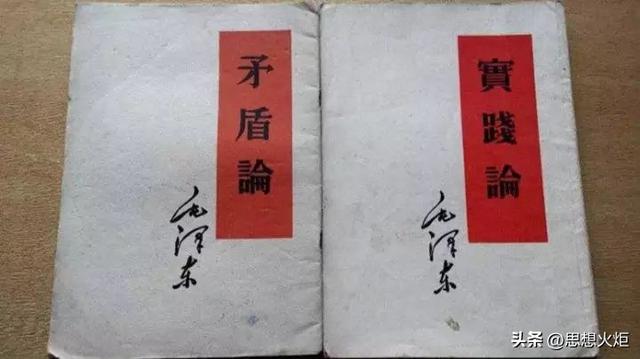 矛盾論
毛泽东
實踐論
毛泽东
头条 @思想火炬